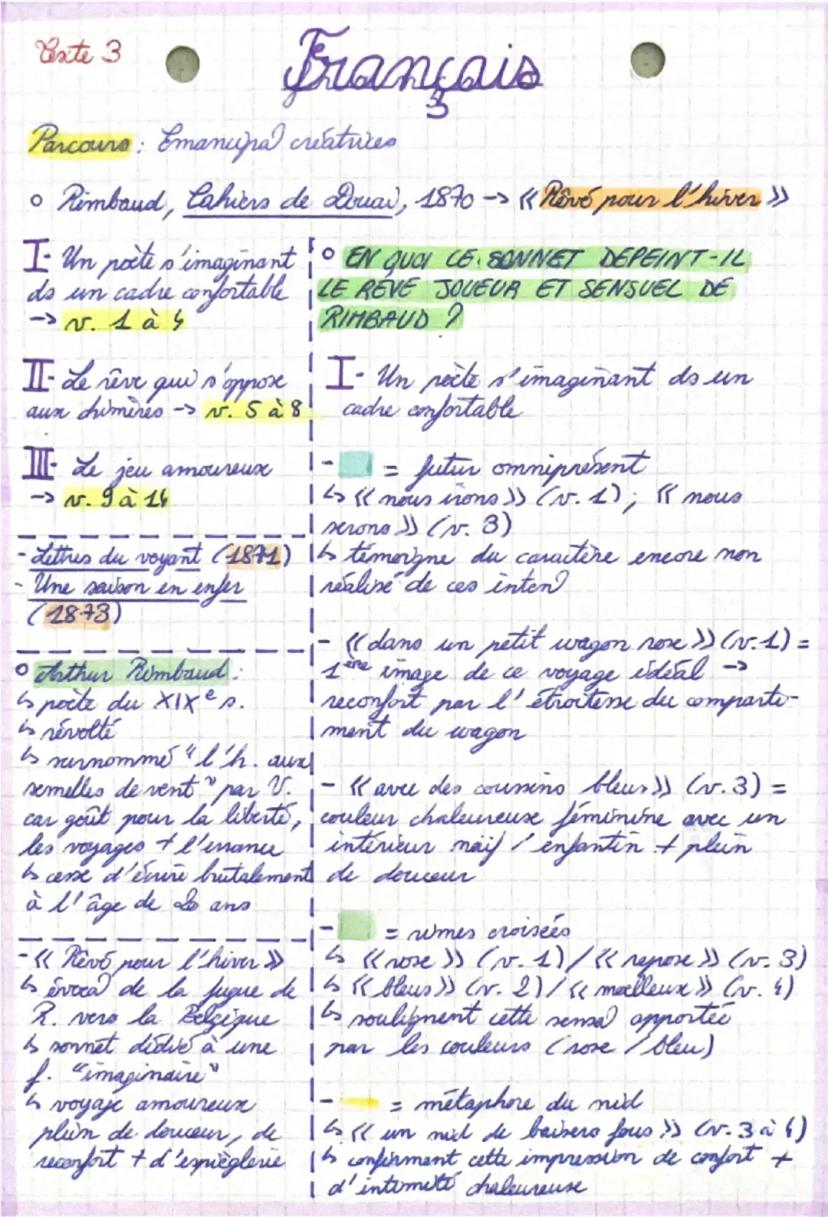 Texte 3
Français
Parcours : Emancipa° créatrices
o Rimbaud, Cahiers de Douai, 1870 -> << Rêvé pour l'hiver >>
I- Un poète s'imaginant
ds un cadre confortable
-> v. 1 à 4
II- Le rêve qui s'oppose
aux chimères -> v. 5 à 8
III- Le jeu amoureux
-> v. 9 à 14
- Lettres du voyant (1871)
- Une saison en enfer
(1873)
o Arthur Rimbaud :
↳ poète du XIXe s.
↳ révolté
↳ surnommé "l'h. aux
semelles de vent" par V.
car goût pour la liberté,
les voyages + l'errance
↳ cesse d'écrire brutalement
à l'âge de 20 ans
- << Rêvé pour l'hiver >>
↳ évoca° de la fugue de
R. vers la Belgique
↳ sonnet dédié à une
f. "imaginaire"
↳ voyage amoureux
plein de douceur, de
reconfort + d'espièglerie
o EN QUOI CE SONNET DEPEINT-IL
LE RÊVE JOUEUR ET SENSUEL DE
RIMBAUD ?
I- Un poète s'imaginant ds un
cadre confortable
- = futur omniprésent
↳ << nous irons >> (v. 1) ; << nous
serons >> (v. 3)
↳ témoigne du caractère encore non
réalisé de ces inten°
- << dans un petit wagon rose >> (v.1) =
1ère image de ce voyage idéal ->
reconfort par l'étroitesse du comparti-
ment du wagon
- << avec des coussins bleus >> (v. 3) =
couleur chaleureuse féminine avec un
intérieur naïf / enfantin + plein
de douceur
- = rimes croisées
↳ << rose >> (v. 1) / << repose >> (v. 3)
↳ << bleus >> (v. 2) / << moelleux >> (v. 4)
↳ soulignent cette sensa° apportée
par les couleurs (rose / bleu)
- = métaphore du nid
↳ << un nid de baisers fous >> (v. 3 à 4)
↳ confirment cette impression de confort +
d'intimité chaleureuse